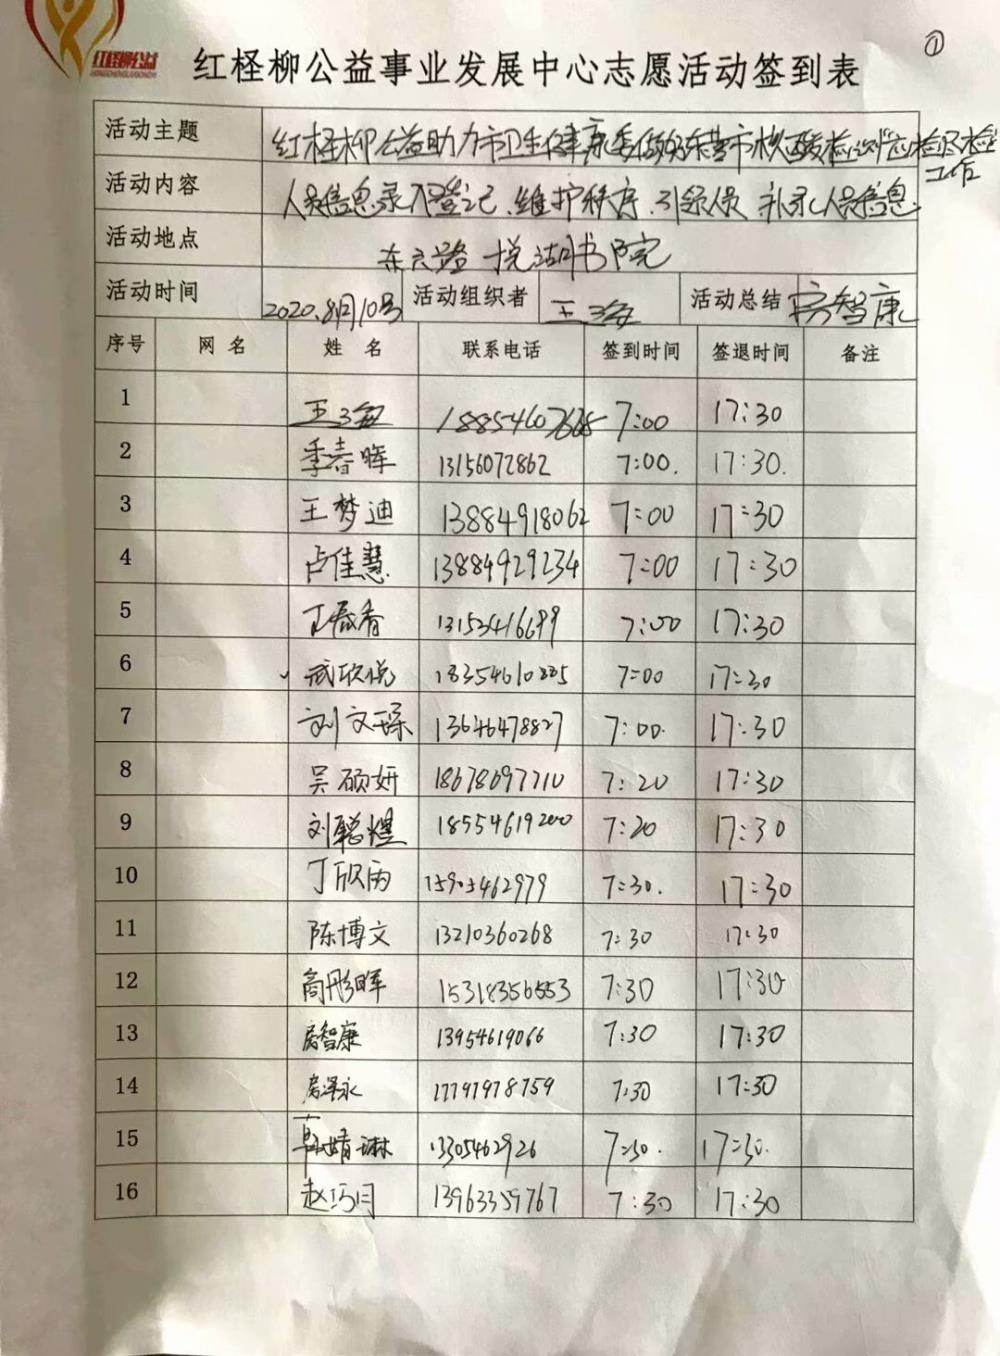 ①
红柽柳公益
红柽柳公益事业发展中心志愿活动签到表
活动主题 红柽柳公益助力市卫生健康委做好东营市核酸检测"应检尽检"
工作
活动内容 人员信息录入登记、维护秩序、引领人员 补录人员信息
活动地点 东六路 悦湖书院
活动时间 2020.8月10号 活动组织者 王海 活动总结 房智康
序号 网名 姓名 联系电话 签到时间 签退时间 备注
1 7:00 17:30
2 季春晖 13156072862 7:00. 17:30.
3 王梦迪 13884918062 7:00 17:30
4 卢佳慧 13884929234 7:00 17:30
5 13153416699 7:00 17:30
6 武欣悦 7:00 17:30
7 刘文琛 13646478827 7:00. 17:30
8 吴硕妍 18678697710 7:20 17:30
9 刘聪煜 18554619200 7:20 17:30
10 丁欣雨 15905462979 7:30. 17:30
11 陈博文 13210360268 7:30 17:30
12 高彤晖 15318356553 7:30 17:30
13 房智康 13954619066 7:30 17:30
14 房泽永 17797978759 7:30 17:30
15 韩婧琳 13305462926 7:30. 17:30.
16 赵巧闩 13963359767 7:30 17:30